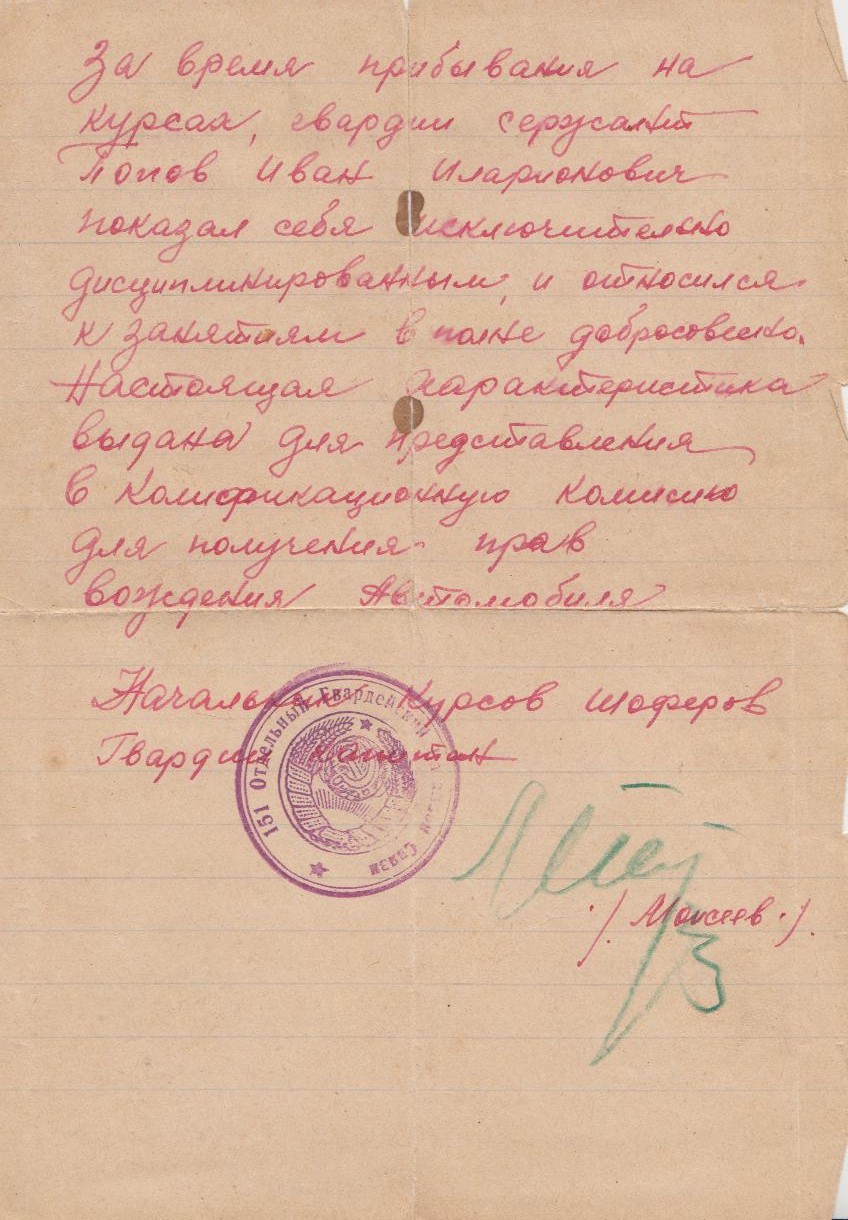 За время прибывания на
курсах, гвардии сержант
Попов Иван Иларионович
показал себя исключительно
дисциплинированным, и относился
к занятиям в полне добросовесно.
Настоящая характеристика
выдана для представления
в Колификационную комисию
для получения прав
вождения Автомобиля
Начальник Курсов шоферов
Гвардии капитан
151 Отдельный Гвардейский Связи
/Моисеев./.